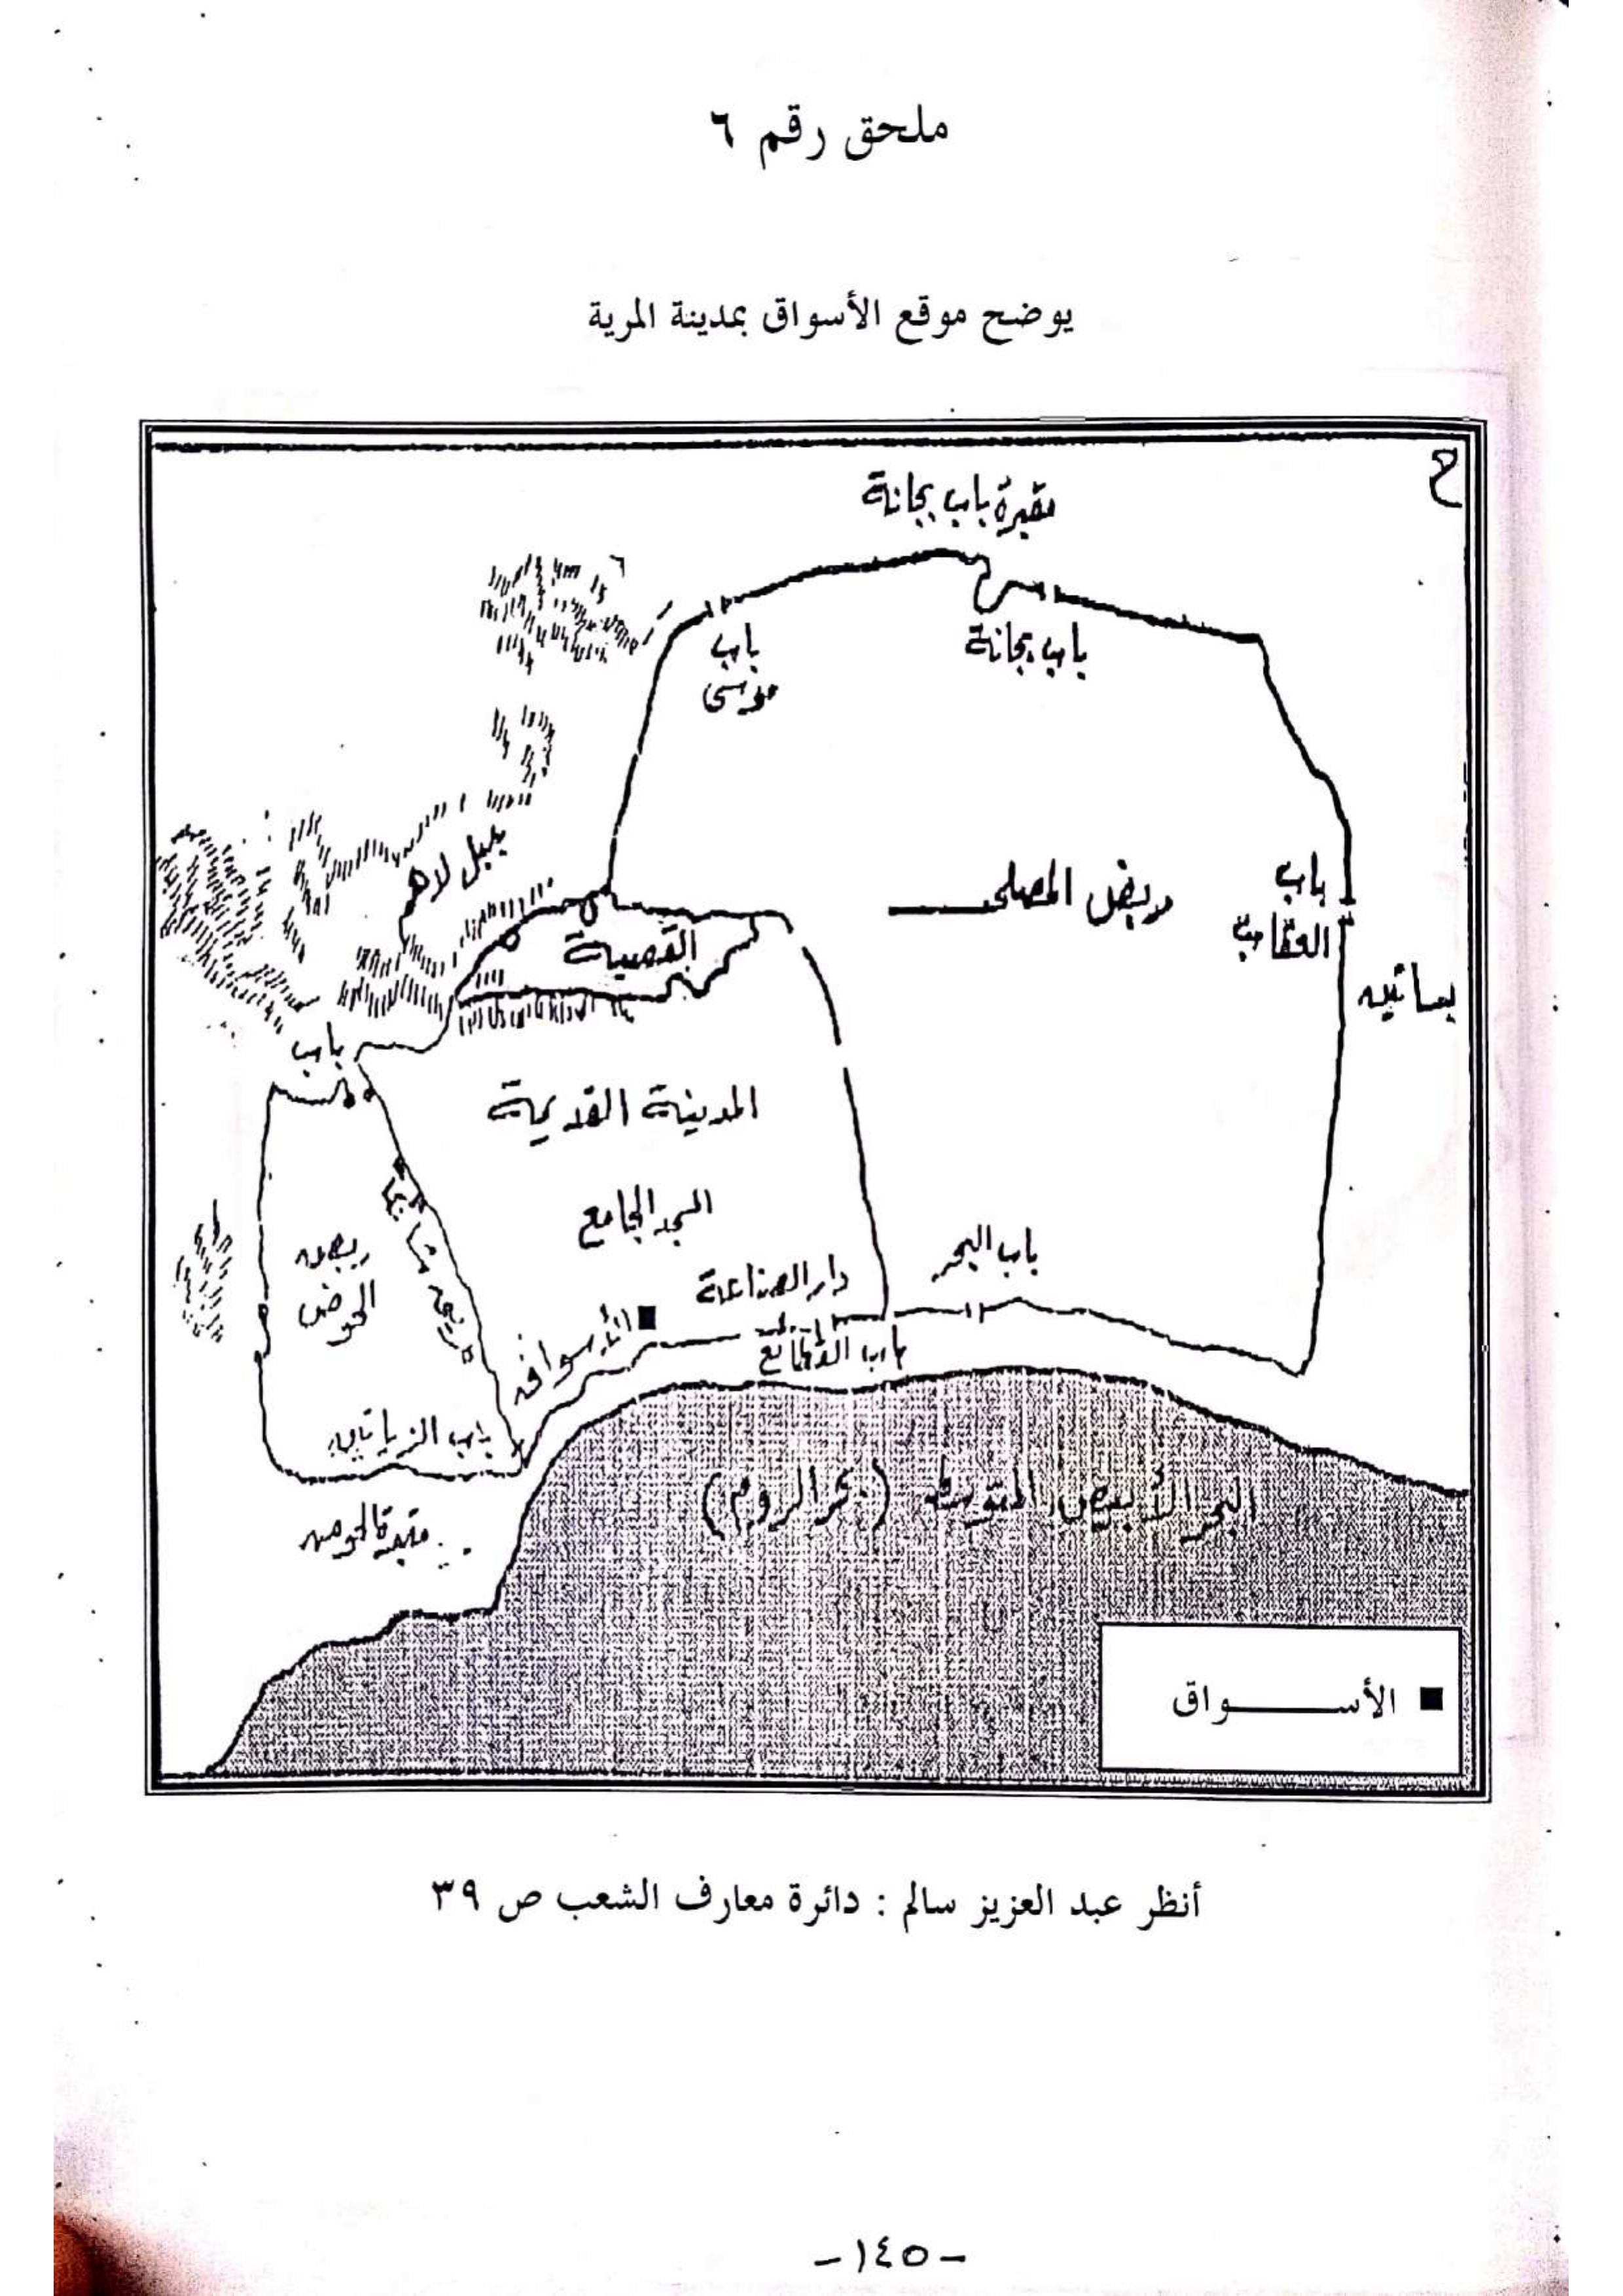 ملحق رقم ٦
يوضح موقع الأسواق بمدينة المرية
ح
مقبرة باب بجانة
باب
موسى
باب بجانة
جبل لاهم
ربض المصلى
باب
العقاب
بساتين
القصبة
باب
المدينة القديمة
المسجد الجامع
ربض
الحوض
دار الصناعة
باب البحر
الأسواق
باب الزياتين
مقبرة الحوض
البحر الأبيض المتوسط (بحر الروم)
■ الأسـواق
أنظر عبد العزيز سالم : دائرة معارف الشعب ص ٣٩
-١٤٥-